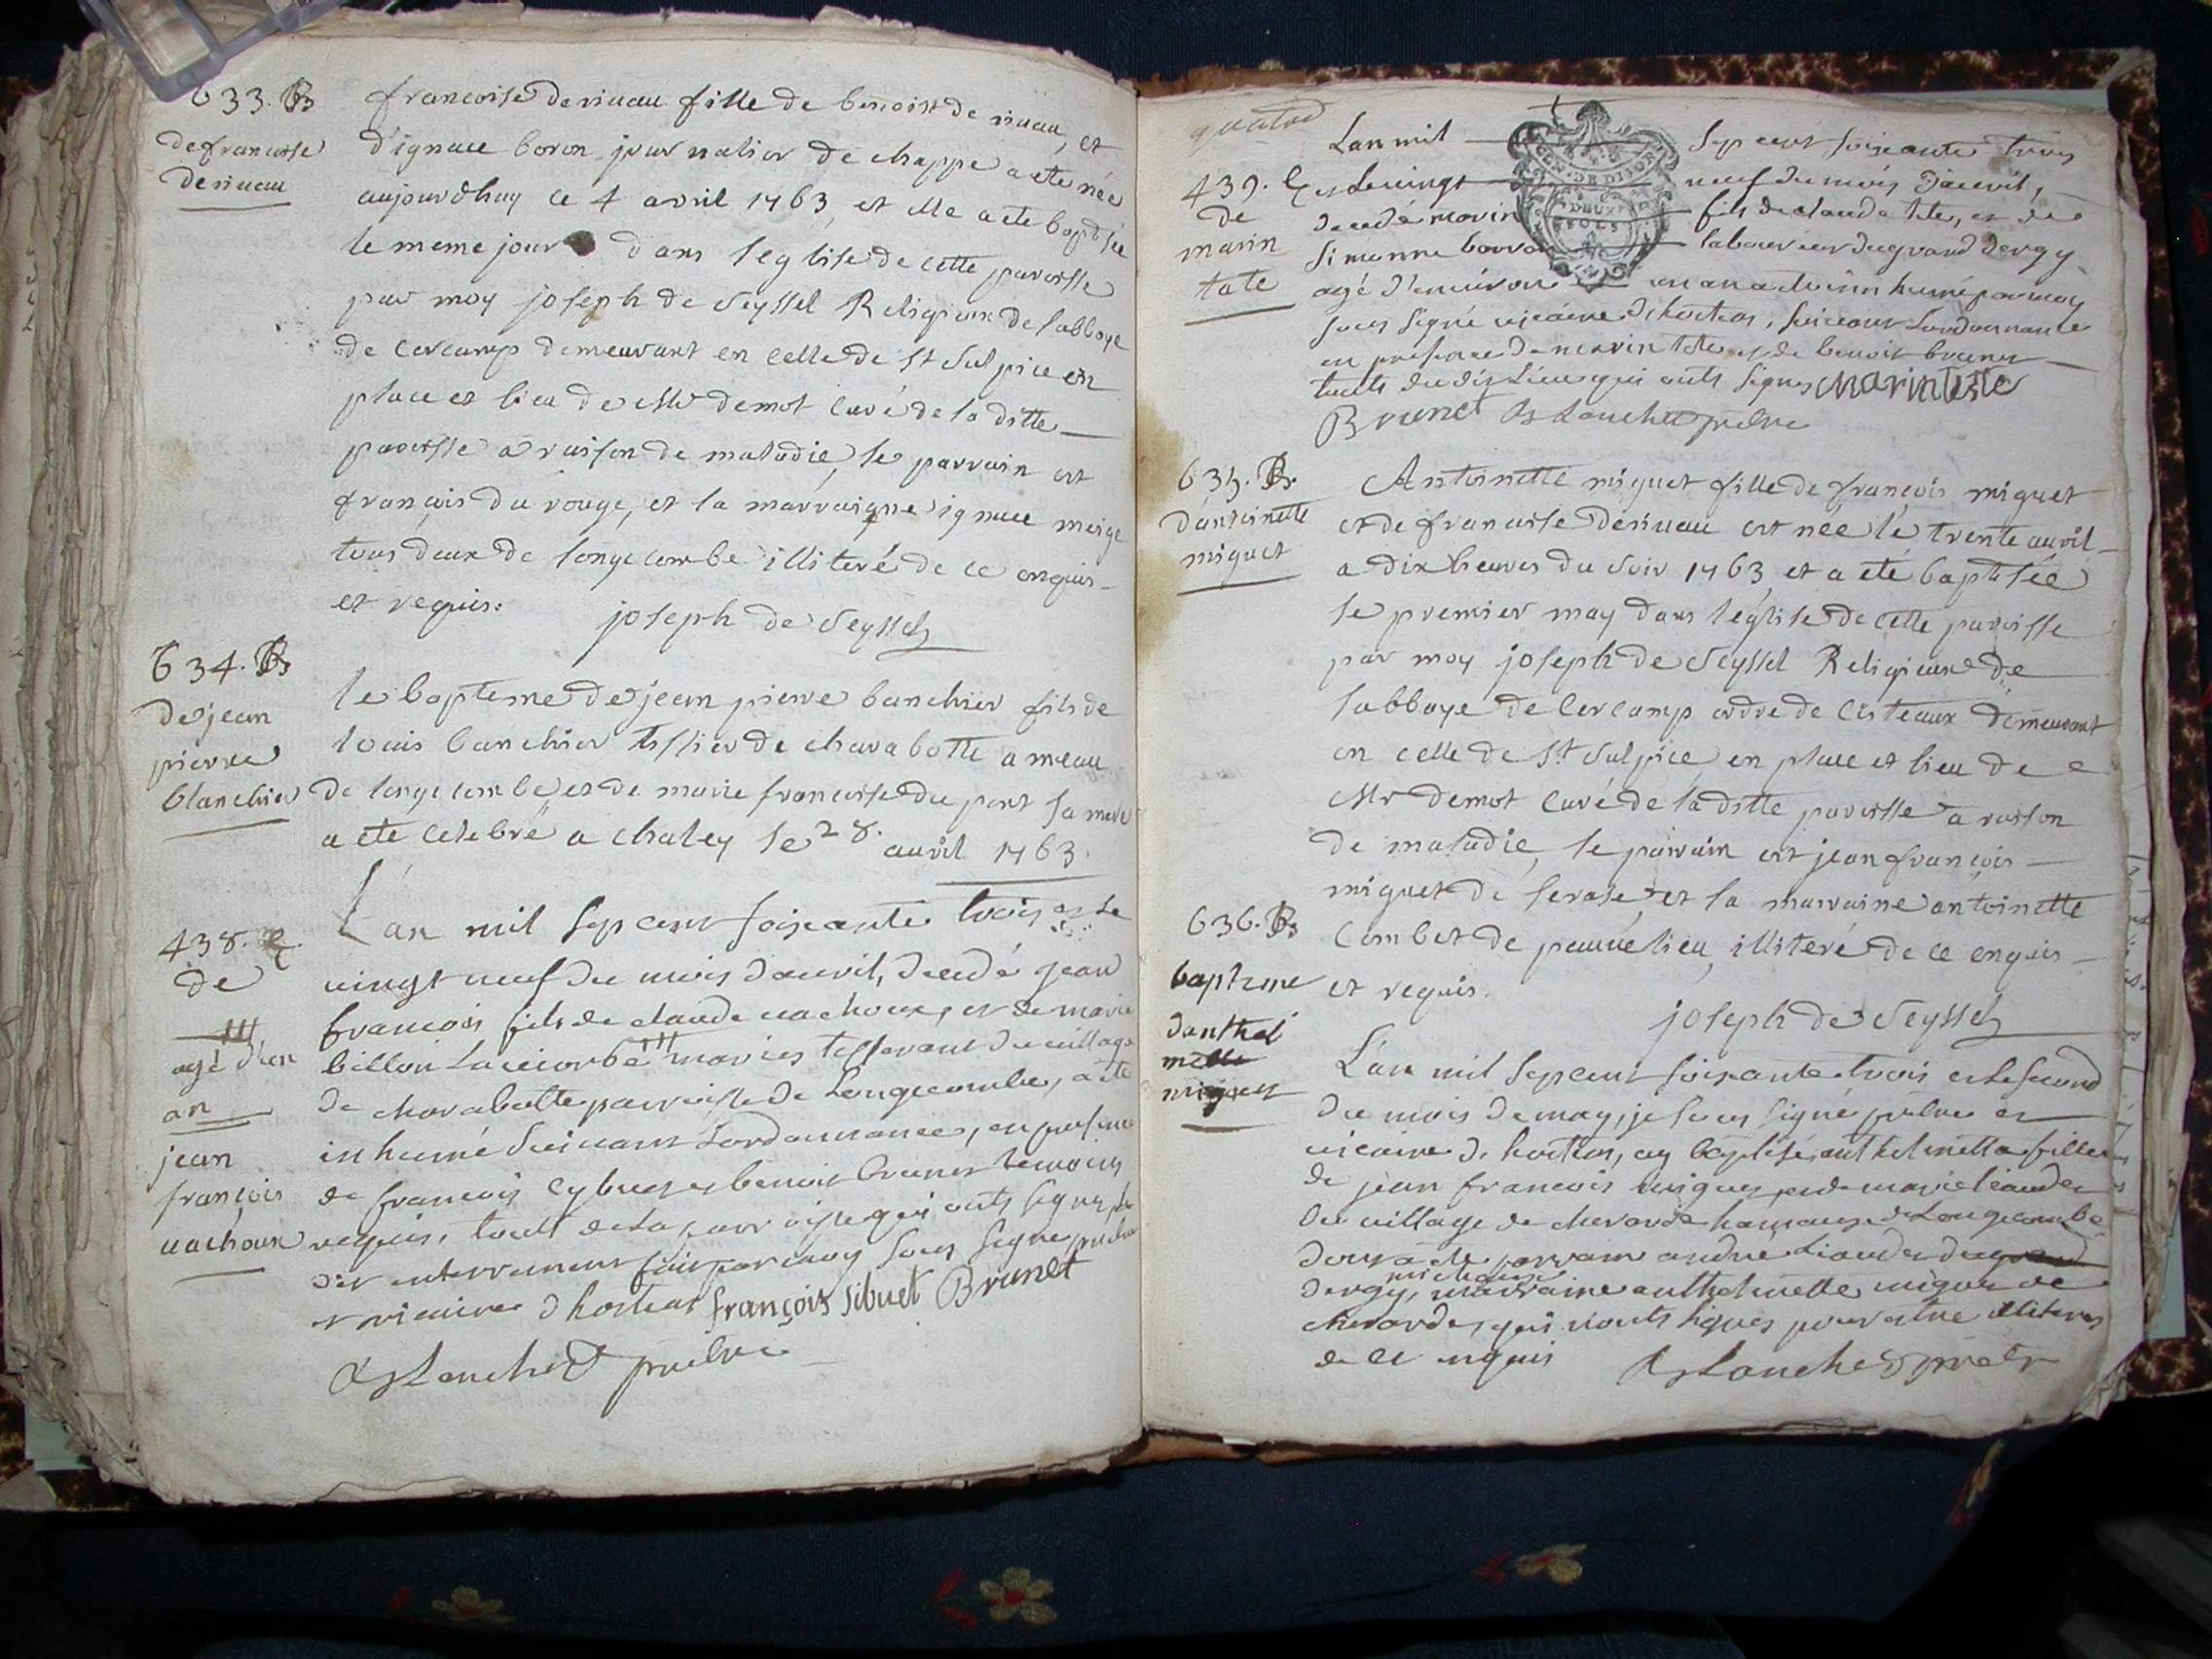 633. B
de francoise
derivau
francoise derivau fille de benoist de rivau, et
d'ignace boron journalier de chappe a ete née
aujourdhuy ce 4 avril 1763, et elle a ete baptisée
le meme jour dans l'eglise de cette paroisse
par moy joseph de Seyssel Religieux de l'abbaye
de Cercamp demeurant en celle de St Sulpice en
place et lieu de Mr demot curé de la ditte
paroisse a raison de maladie, le parrain est
françois du rouge, et la marraigne ignace meige
tous deux de longecombe illiteré de ce enquis
et requis.
joseph de Seyssel
634. B
de jean
pierre
blanchier
le bapteme de jean pierre banchier fils de
louis banchier tissier de charabotte ameau
de longecombe, et de marie francoise du pont sa mere
a ete celebré a chaley le 28. auril 1763.
438. E
de
agé d'un
an
jean
françois
uachoux
L'an mil sept cent soixante trois et le
uingt neuf du mois d'auril, decedé jean
francois fils de claude uachoux, et de marie
billon mariés du uillage
de charabotte parroisse de Longecombe, a été
inhumé suiuant Lordonnance, en presence
de francois sybuet et benoit brunet temoins
requis, touts de la parroisse qui onts signes, le
dit enterrement fait par moy sous signé prêtre
et vicaire d'hostias françois sibuet Brunet
prêtre
quatre
439. E
de
marin
tete
L'an mil sept cent soixante trois
et le uingt neuf du mois d'auril,
decedé marin fils de claude tete, et de
simonne borron laboureur du grand dergy
agé d'enuiron un an a eté inhumé par moy
sous signé vicaire d'hostias, suiuant Lordonnance
en presence de marin tete et de benoit brunet
touts du dit Lieu qui onts signes Marin teste
Brunet prêtre
GEN. DE DIJON
DEUX
SOLS
635. B.
d'antoinette
miguet
Antoinette miguet fille de françois miguet
et de francoise derivau est née le trente auril
a dix heures du soir 1763 et a eté baptisée
le premier may dans l'eglise de cette paroisse
par moy joseph de Seyssel Religieux de
l'abbaye de Cercamp ordre de Cisteaux demeurant
en celle de St Sulpice en place et lieu de
Mr demot curé de la ditte paroisse a raison
de maladie, le parrain est jean françois
miguet de lerase, et la marraine antoinette
Combet de pauvre lieu, illiteré de ce enquis
et requis.
joseph de Seyssel
636. B
baptême
danthel
mette
miguet
L'an mil sept cent soixante trois et le second
du mois de may, je sous signé prêtre et
uicaire d'hostias, ay baptisé anthelmette fille
de jean francois miguet et de marie liaudet
du uillage de cheuarde hameau de Longecombe
dont a eté parrain andré Liaudet du grand
dergy, marraine anthelmette miguet de
cheuarde, qui n'onts signés pour estre illiteres
de ce enquis prêtre